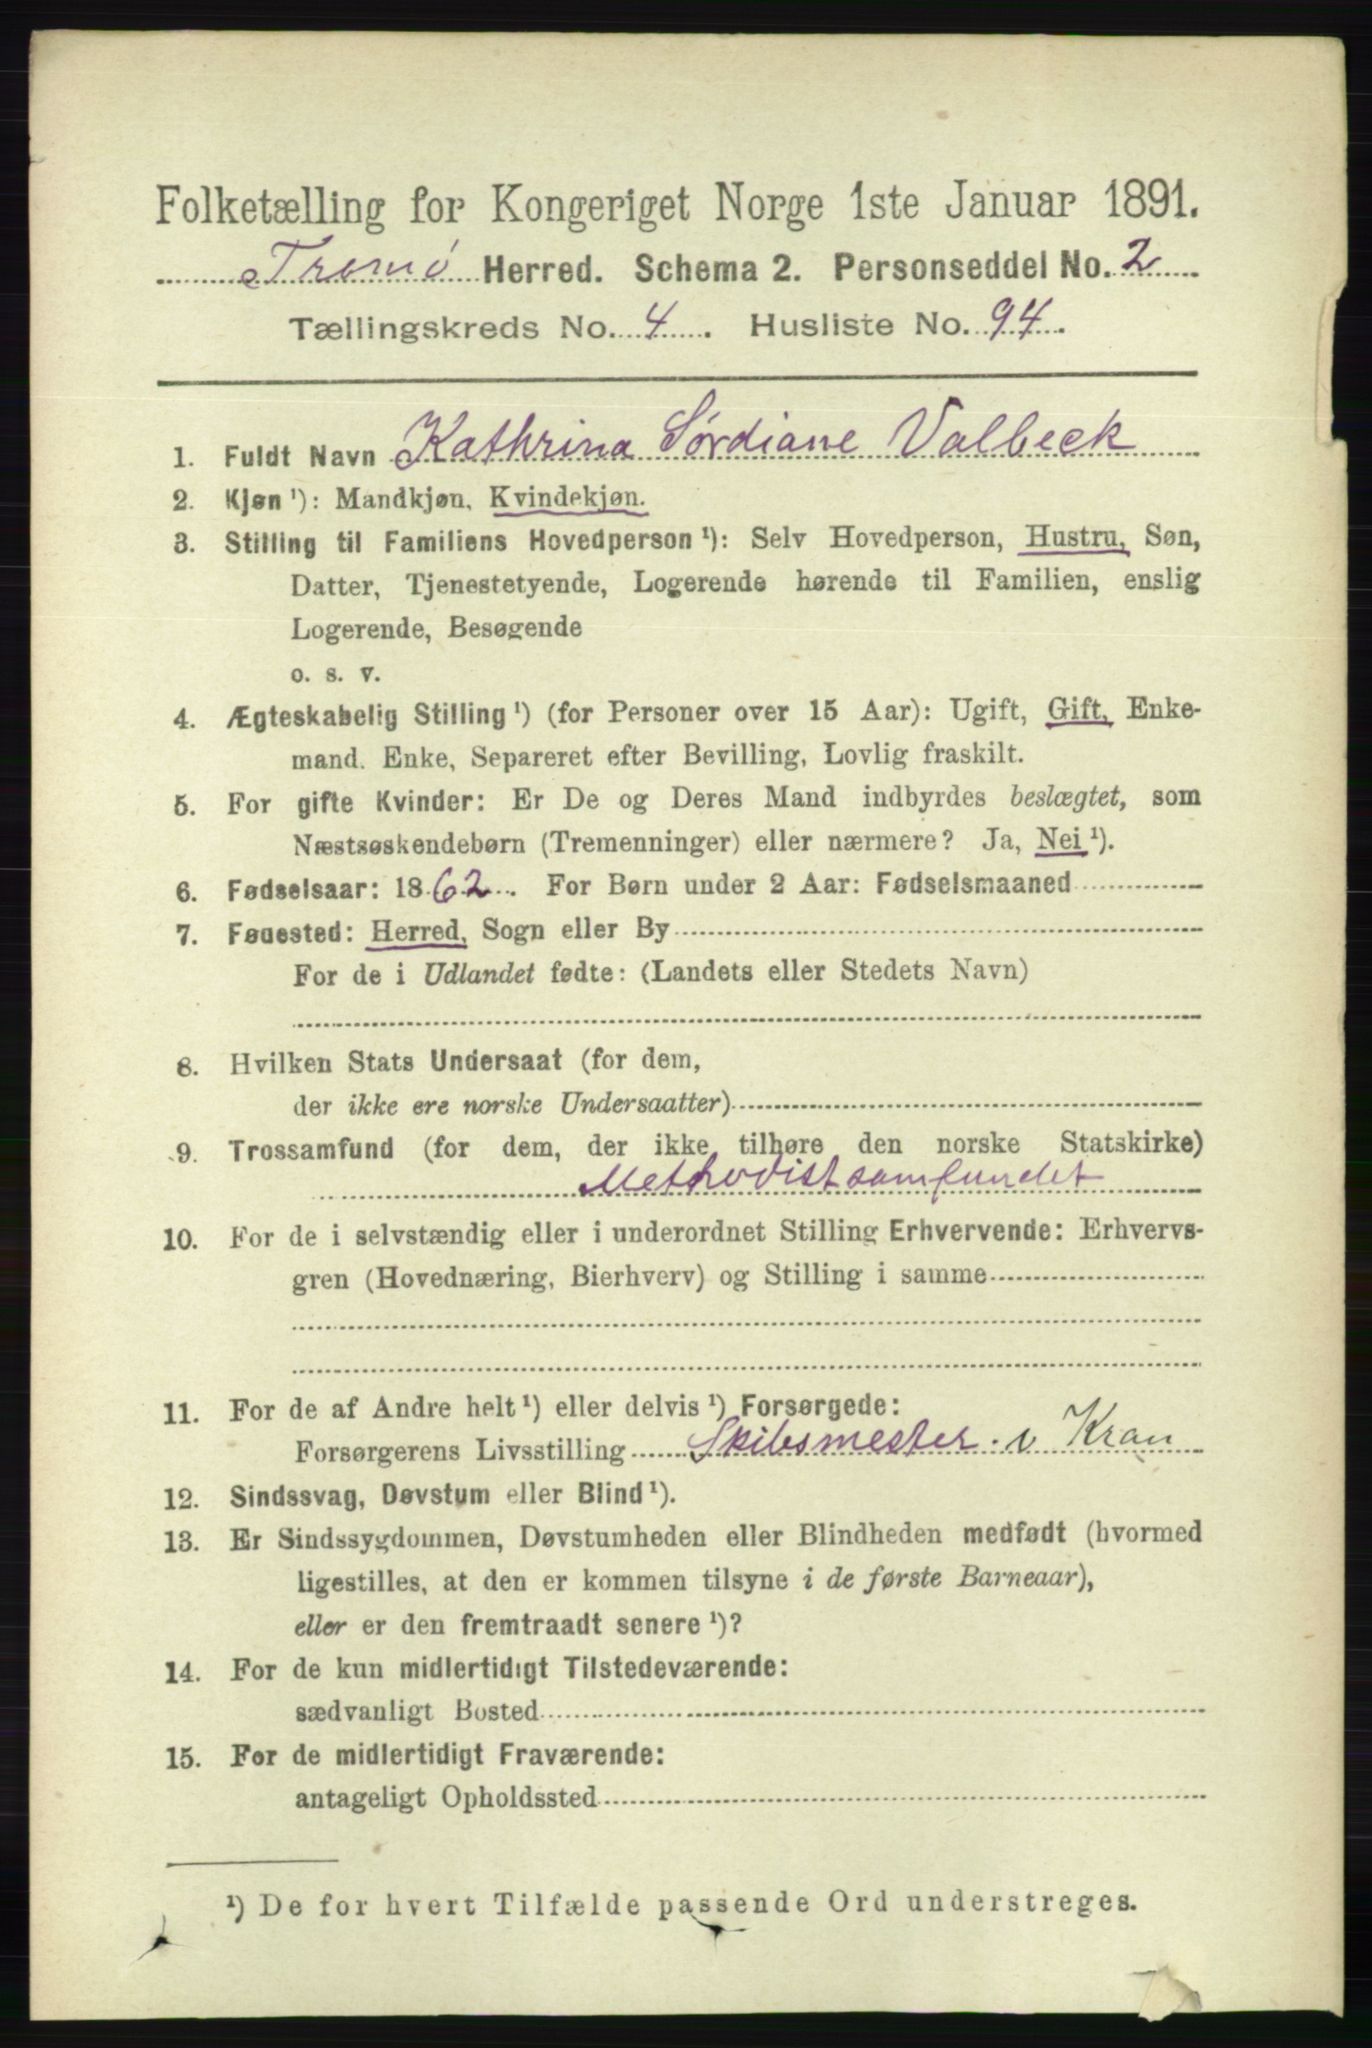 Folketælling for Kongeriget Norge 1ste Januar 1891.
Tromø Herred. Schema 2. Personseddel No. 2
Tællingskreds No. 4. Husliste No. 94.
1. Fuldt Navn Kathrina Sørdiane Valbeck
2. Kjøn ¹): Mandkjøn, Kvindekjøn.
3. Stilling til Familiens Hovedperson ¹): Selv Hovedperson, Hustru, Søn,
Datter, Tjenestetyende, Logerende hørende til Familien, enslig
Logerende, Besøgende
o. s. v.
4. Ægteskabelig Stilling ¹) (for Personer over 15 Aar): Ugift, Gift, Enke-
mand. Enke, Separeret efter Bevilling, Lovlig fraskilt.
5. For gifte Kvinder: Er De og Deres Mand indbyrdes beslægtet, som
Næstsøskendebørn (Tremenninger) eller nærmere? Ja, Nei ¹).
6. Fødselsaar: 1862. For Børn under 2 Aar: Fødselsmaaned
7. Fødested: Herred, Sogn eller By
For de i Udlandet fødte: (Landets eller Stedets Navn)
8. Hvilken Stats Undersaat (for dem,
der ikke ere norske Undersaatter)
9. Trossamfund (for dem, der ikke tilhøre den norske Statskirke)
Methodistsamfundet
10. For de i selvstændig eller i underordnet Stilling Erhvervende: Erhvervs-
gren (Hovednæring, Bierhverv) og Stilling i samme
11. For de af Andre helt ¹) eller delvis ¹) Forsørgede:
Forsørgerens Livsstilling Skibsmester v Kran
12. Sindssvag, Døvstum eller Blind ¹).
13. Er Sindssygdommen, Døvstumheden eller Blindheden medfødt (hvormed
ligestilles, at den er kommen tilsyne i de første Barneaar),
eller er den fremtraadt senere ¹)?
14. For de kun midlertidigt Tilstedeværende:
sædvanligt Bosted
15. For de midlertidigt Fraværende:
antageligt Opholdssted
¹) De for hvert Tilfælde passende Ord understreges.